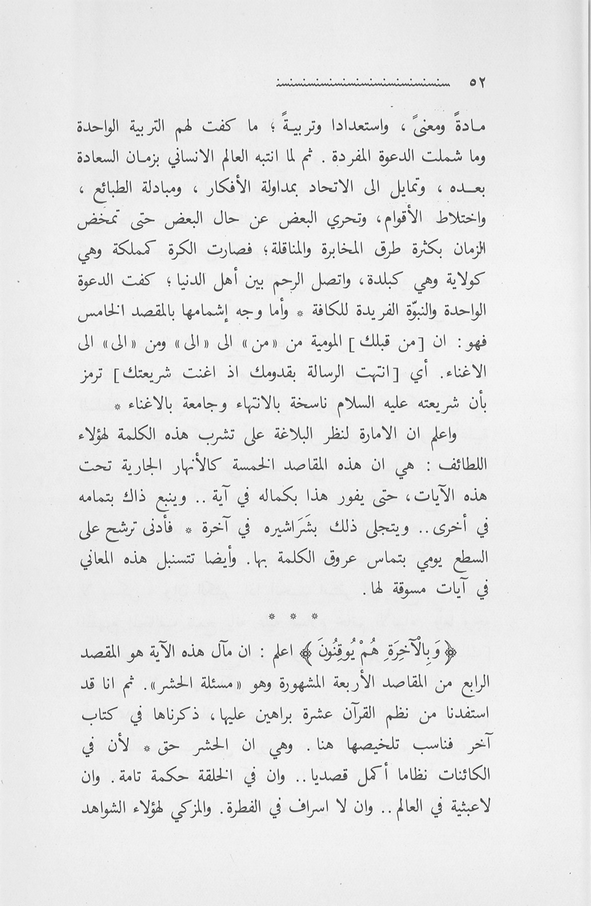 ٥٢
مـادةً ومعنىً ، واستعدادا وتربيـةً ؛ ما كفت لهم التربية الواحدة
وما شملت الدعوة المفردة . ثم لما انتبه العالم الانساني بزمان السعادة
بعـده ، وتمايل الى الاتحاد بمداولة الأفكار ، ومبادلة الطبائع ،
واختلاط الأقوام، وتحري البعض عن حال البعض حتى تمخض
الزمان بكثرة طرق المخابرة والمناقلة؛ فصارت الكرة كمملكة وهي
كولاية وهي كبلدة، واتصل الرحم بين أهل الدنيا ؛ كفت الدعوة
الواحدة والنبوّة الفريدة للكافة * وأما وجه إشمامها بالمقصد الخامس
فهو: ان [من قبلك] المومية من «من» الى «الى» ومن «الى» الى
الاغناء. أي [انتهت الرسالة بقدومك اذ اغنت شريعتك] ترمز
بأن شريعته عليه السلام ناسخة بالانتهاء وجامعة بالاغناء *
واعلم ان الامارة لنظر البلاغة على تشرب هذه الكلمة لهؤلاء
اللطائف : هي ان هذه المقاصد الخمسة كالأنهار الجارية تحت
هذه الآيات، حتى يفور هذا بكماله في آية .. وينبع ذاك بتمامه
في أخرى.. ويتجلى ذلك بشَرَاشيره في آخرة * فأدنى ترشح على
السطع يومي بتماس عروق الكلمة بها. وأيضا تتسنبل هذه المعاني
في آيات مسوقة لها.
* * *
﴿ وَبِالْآخِرَةِ هُمْ يُوقِنُونَ ﴾ اعلم : ان مآل هذه الآية هو المقصد
الرابع من المقاصد الأربعة المشهورة وهو «مسئلة الحشر». ثم انا قد
استفدنا من نظم القرآن عشرة براهين عليها، ذكرناها في كتاب
آخر فناسب تلخيصها هنا. وهي ان الحشر حق * لأن في
الكائنات نظاما أكمل قصديا.. وان في الخلقة حكمة تامة. وان
لاعبثية في العالم.. وان لا اسراف في الفطرة. والمزكي لهؤلاء الشواهد